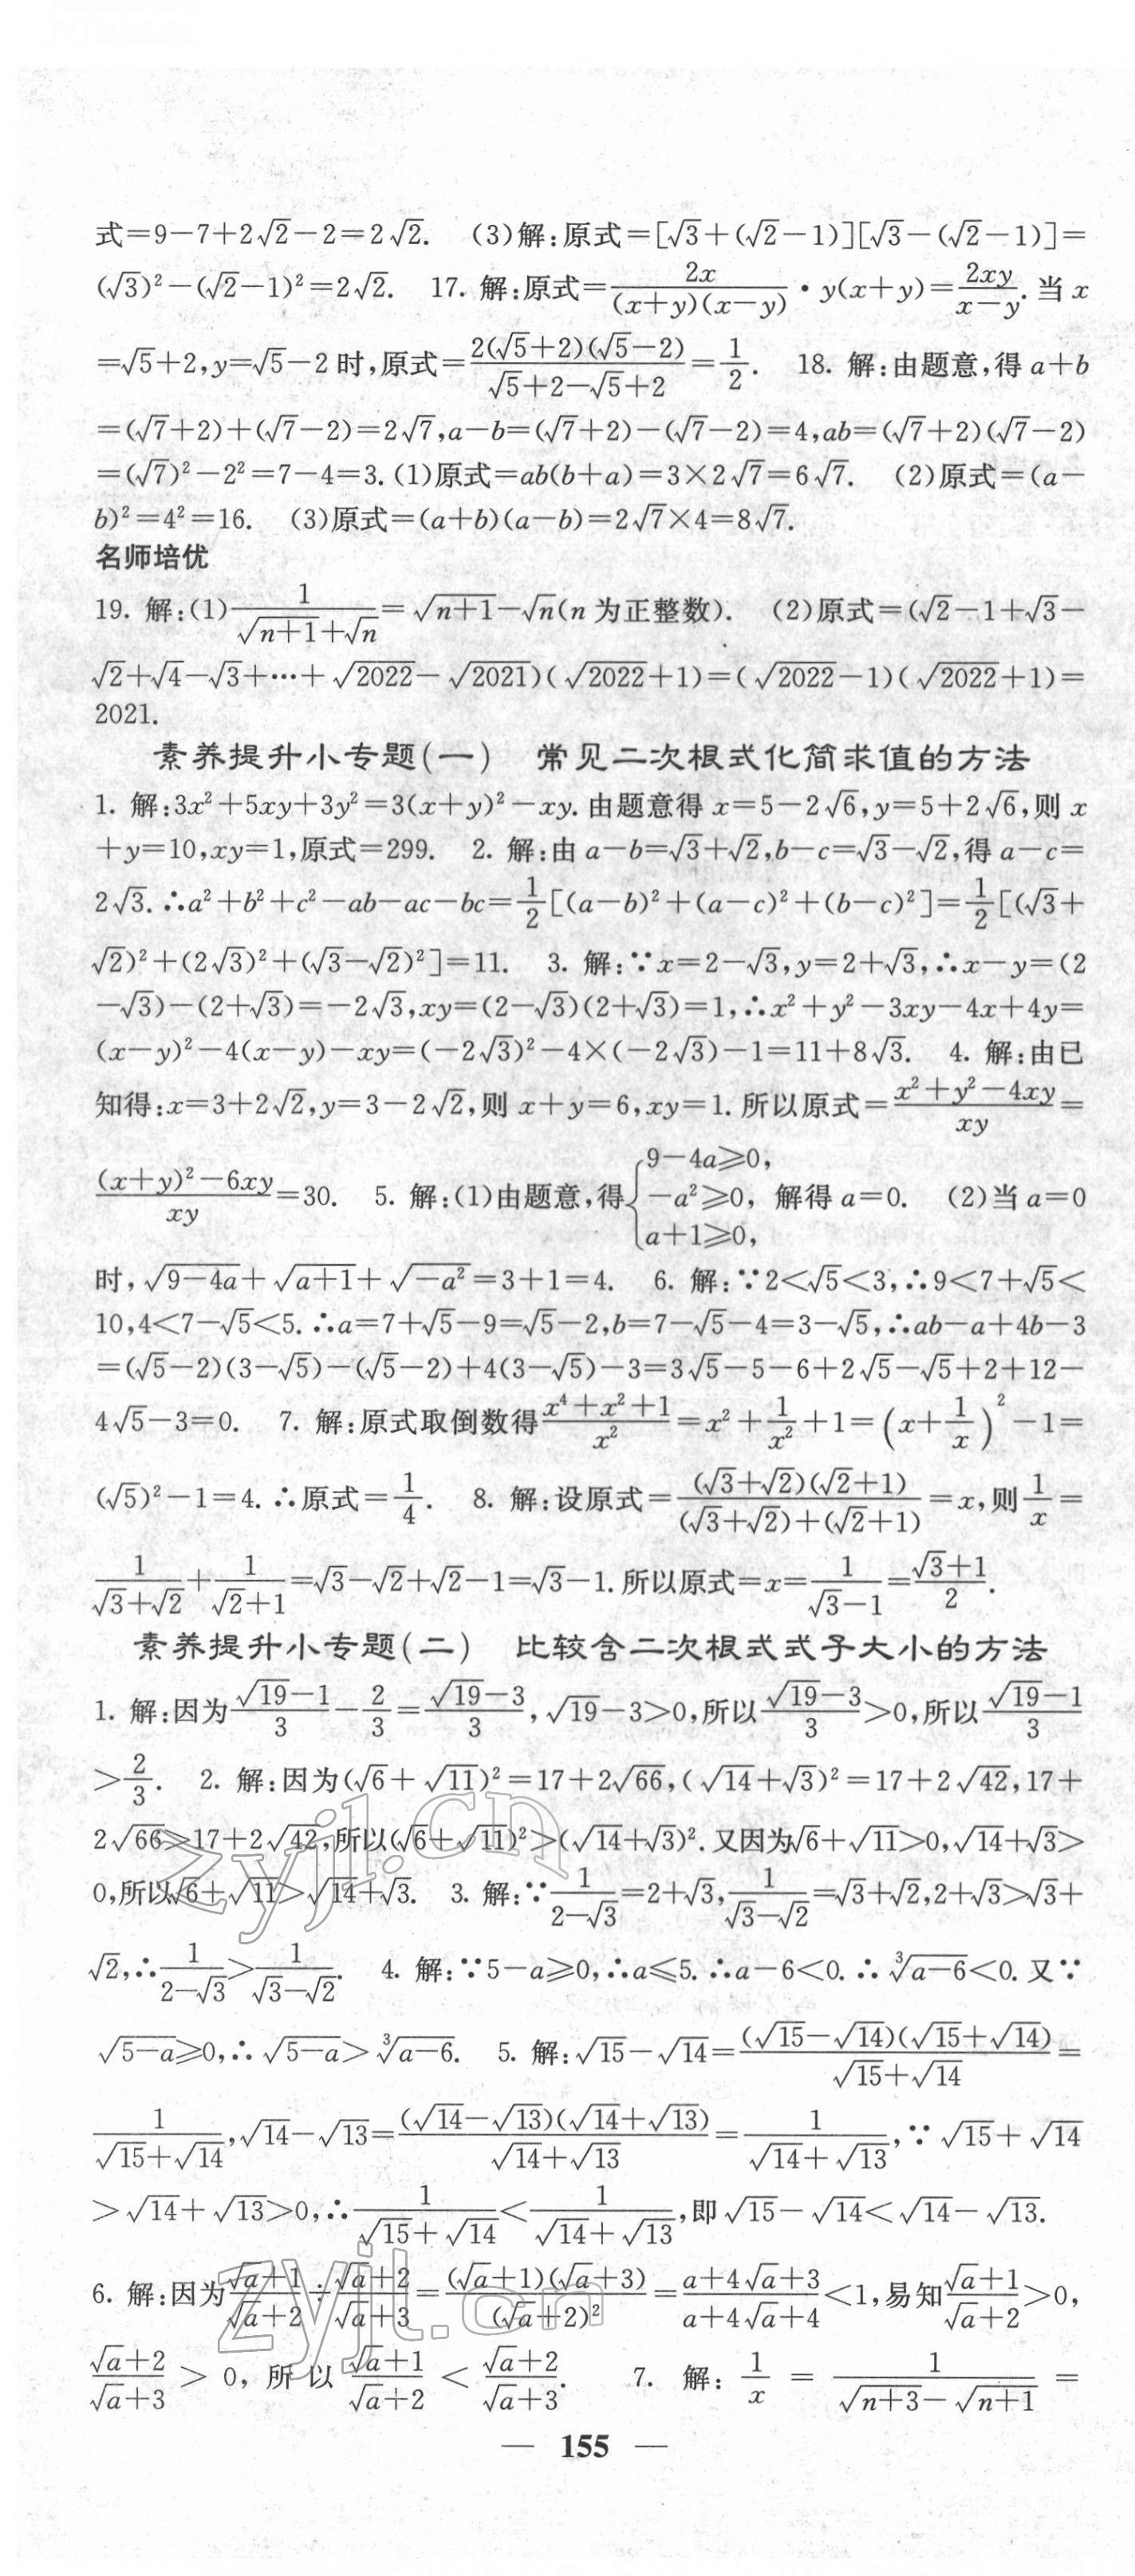 式=9-7+2√2-2=2√2. (3)解:原式=[√3+(√2-1)][√3-(√2-1)]=
(√3)²-(√2-1)²=2√2. 17. 解:原式=2x/((x+y)(x-y))·y(x+y)=2xy/(x-y).当 x
=√5+2,y=√5-2 时,原式=2(√5+2)(√5-2)/(√5+2-√5+2)=1/2. 18. 解:由题意,得 a+b
=(√7+2)+(√7-2)=2√7,a-b=(√7+2)-(√7-2)=4,ab=(√7+2)(√7-2)
=(√7)²-2²=7-4=3.(1)原式=ab(b+a)=3×2√7=6√7. (2)原式=(a-
b)²=4²=16. (3)原式=(a+b)(a-b)=2√7×4=8√7.
名师培优
19. 解:(1)1/(√(n+1)+√n)=√(n+1)-√n(n 为正整数). (2)原式=(√2-1+√3-
√2+√4-√3+…+√2022-√2021)(√2022+1)=(√2022-1)(√2022+1)=
2021.
素养提升小专题(一) 常见二次根式化简求值的方法
1. 解:3x²+5xy+3y²=3(x+y)²-xy.由题意得 x=5-2√6,y=5+2√6,则 x
+y=10,xy=1,原式=299. 2. 解:由 a-b=√3+√2,b-c=√3-√2,得 a-c=
2√3.∴a²+b²+c²-ab-ac-bc=1/2[(a-b)²+(a-c)²+(b-c)²]=1/2[(√3+
√2)²+(2√3)²+(√3-√2)²]=11. 3. 解:∵x=2-√3,y=2+√3,∴x-y=(2
-√3)-(2+√3)=-2√3,xy=(2-√3)(2+√3)=1,∴x²+y²-3xy-4x+4y=
(x-y)²-4(x-y)-xy=(-2√3)²-4×(-2√3)-1=11+8√3. 4. 解:由已
知得:x=3+2√2,y=3-2√2,则 x+y=6,xy=1.所以原式=(x²+y²-4xy)/xy=
((x+y)²-6xy)/xy=30. 5. 解:(1)由题意,得{9-4a≥0, -a²≥0, a+1≥0, 解得 a=0. (2)当 a=0
时,√(9-4a)+√(a+1)+√(-a²)=3+1=4. 6. 解:∵2<√5<3,∴9<7+√5<
10,4<7-√5<5.∴a=7+√5-9=√5-2,b=7-√5-4=3-√5,∴ab-a+4b-3
=(√5-2)(3-√5)-(√5-2)+4(3-√5)-3=3√5-5-6+2√5-√5+2+12-
4√5-3=0. 7. 解:原式取倒数得(x⁴+x²+1)/x²=x²+1/x²+1=(x+1/x)²-1=
(√5)²-1=4.∴原式=1/4. 8. 解:设原式=(√3+√2)(√2+1)/((√3+√2)+(√2+1))=x,则1/x=
1/(√3+√2)+1/(√2+1)=√3-√2+√2-1=√3-1.所以原式=x=1/(√3-1)=(√3+1)/2.
素养提升小专题(二) 比较含二次根式式子大小的方法
1. 解:因为(√19-1)/3-2/3=(√19-3)/3,√19-3>0,所以(√19-3)/3>0,所以(√19-1)/3
>2/3. 2. 解:因为(√6+√11)²=17+2√66,(√14+√3)²=17+2√42,17+
2√66>17+2√42,所以(√6+√11)²>(√14+√3)².又因为√6+√11>0,√14+√3>
0,所以√6+√11>√14+√3. 3. 解:∵1/(2-√3)=2+√3,1/(√3-√2)=√3+√2,2+√3>√3+
√2,∴1/(2-√3)>1/(√3-√2). 4. 解:∵5-a≥0,∴a≤5.∴a-6<0.∴∛(a-6)<0.又∵
√(5-a)≥0,∴√(5-a)>∛(a-6). 5. 解:√15-√14=(√15-√14)(√15+√14)/(√15+√14)=
1/(√15+√14),√14-√13=(√14-√13)(√14+√13)/(√14+√13)=1/(√14+√13),∵√15+√14
>√14+√13>0,∴1/(√15+√14)<1/(√14+√13),即√15-√14<√14-√13.
6. 解:因为(√a+1)/(√a+2)÷(√a+2)/(√a+3)=(√a+1)(√a+3)/(√a+2)²=(a+4√a+3)/(a+4√a+4)<1,易知(√a+1)/(√a+2)>0,
(√a+2)/(√a+3)>0,所以(√a+1)/(√a+2)<(√a+2)/(√a+3). 7. 解:1/x=1/(√(n+3)-√(n+1))=
— 155 —
zyjl.cn
zyjl.cn